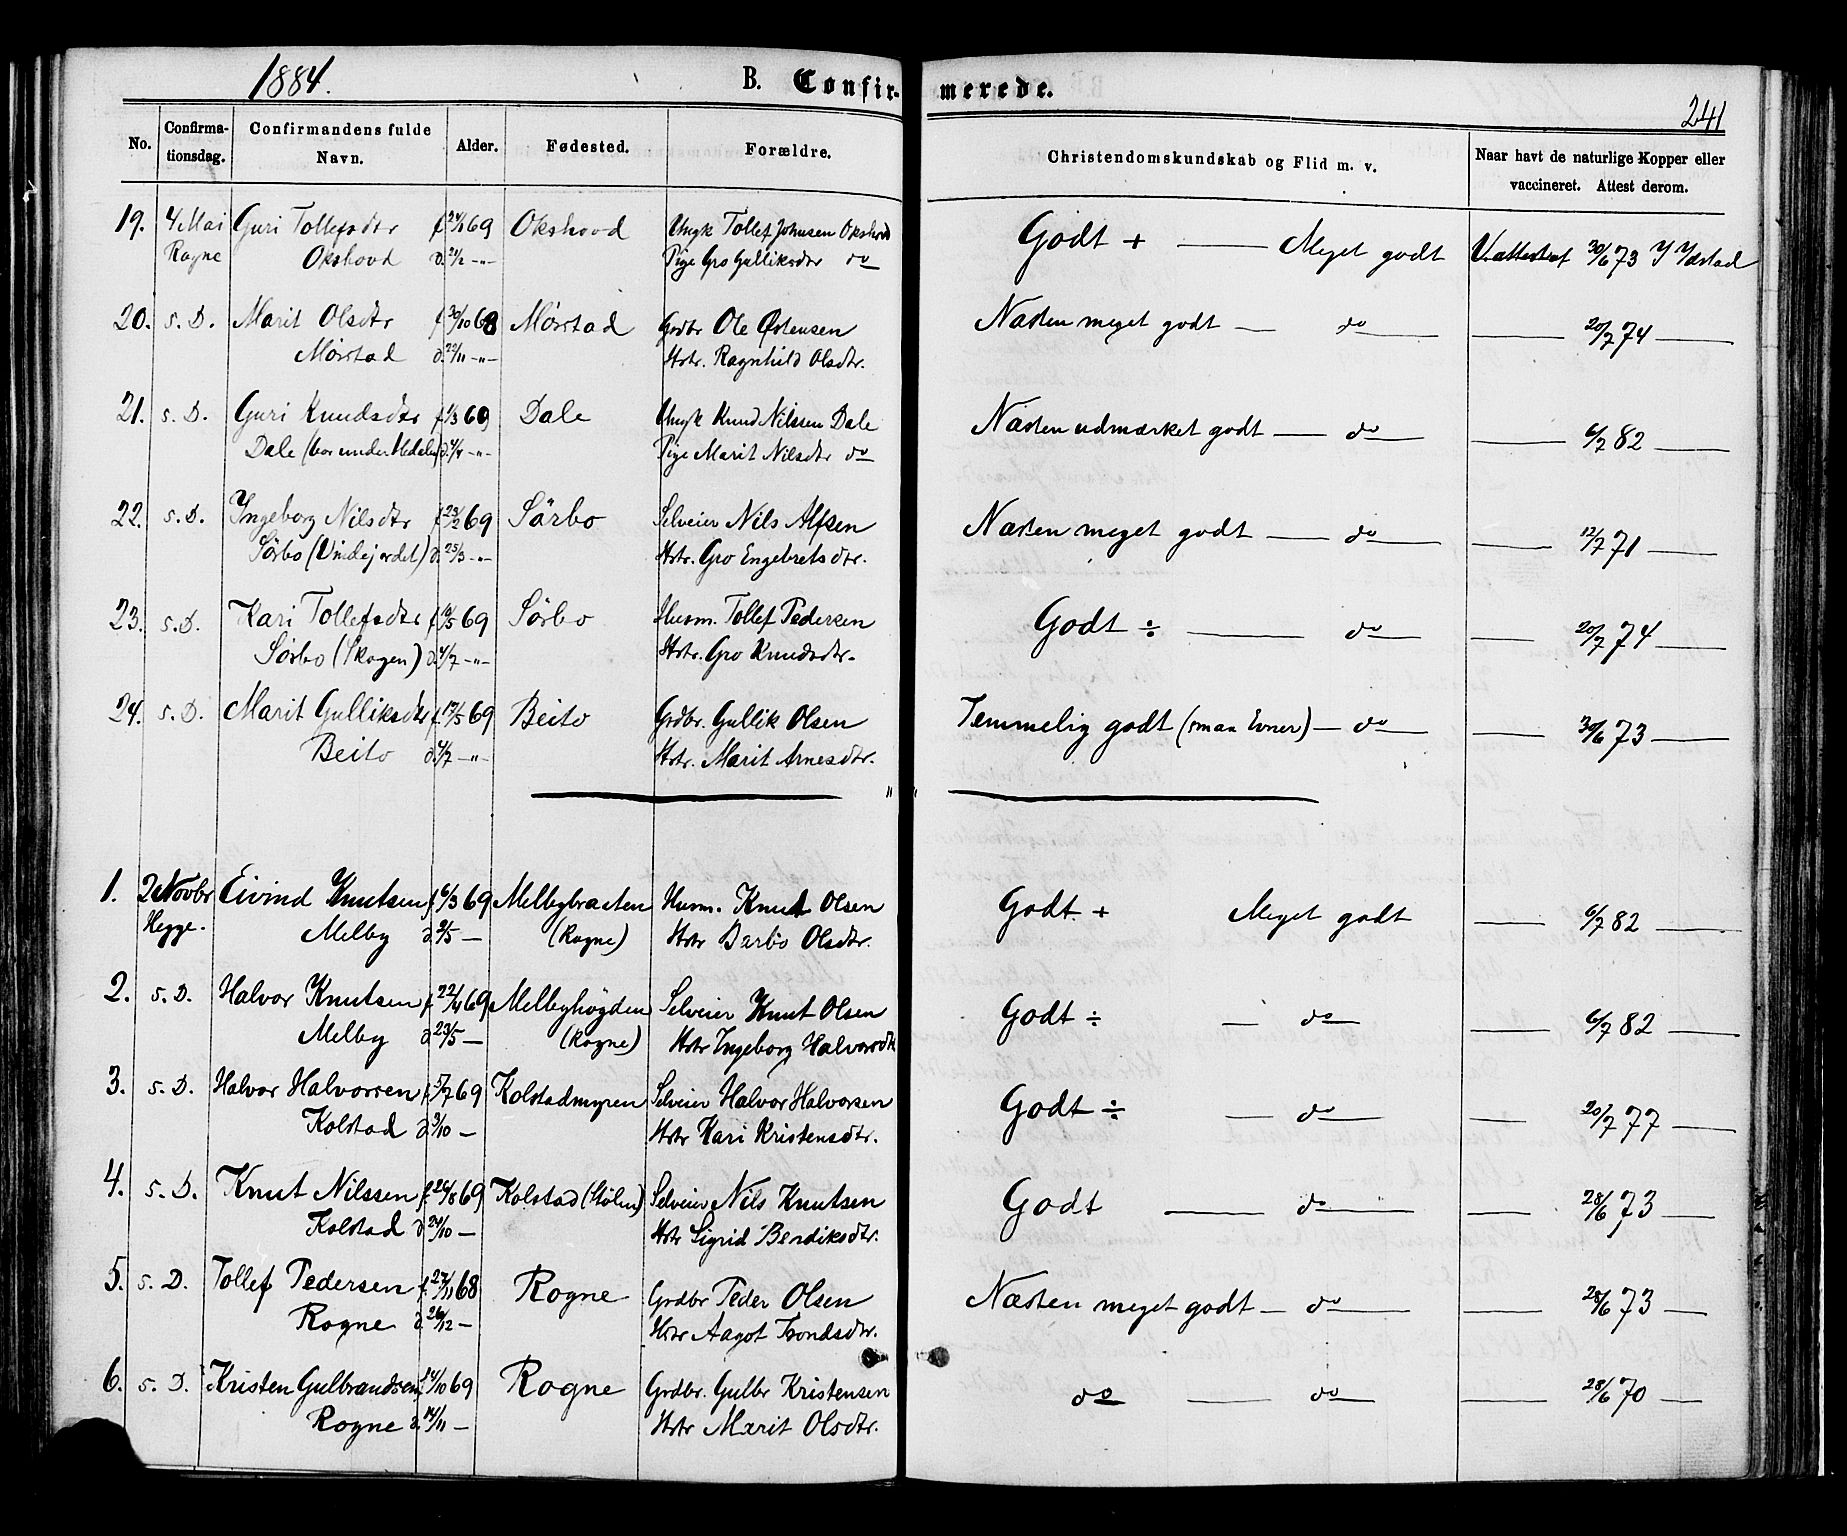 1884.
B. Confirmerede.
241
No. Confirmationsdag. Confirmandens fulde Navn. Alder. Fødested. Forældre. Christendomskundskab og Flid m. v. Naar havt de naturlige Kopper eller vaccineret. Attest derom.
19. 4 Mai Guri Tollefsdtr f 24/1 69 Okshovd Ungk Tollef Johnsen Okshovd Godt + — Meget godt V.attest af 30/6 73
Rogne Okshovd d. 21/2 -"- Pige Gro Gulliksdtr do
20. s. D. Marit Olsdtr f 30/10 68 Mørstad Grdbr Ole Østensen Næsten meget godt — do — 20/7 74 —
Mørstad d. 22/11 -"- Hstr. Ragnhild Olsdtr.
21. s. D. Guri Knudsdtr f 1/3 69 Dale Ungk Knud Nilssen Dale Næsten udmærket godt — do — 6/7 82 —
Dale d. 4/4 -"- Pige Marit Nilsdtr do
22. s. D. Ingeborg Nilsdtr f 23/2 69 Sörbo Selveier Nils Alfsen Næsten meget godt — do — 12/7 71 —
Sørbo (Vindejordet) d. 25/3 -"- Hstr. Gro Engebretsdtr.
23. s. D. Kari Tollefsdtr f 10/5 69 Sørbo Husm. Tollef Pedersen Godt ÷ — do — 20/7 74 —
Sørbo (Skogen) d. 4/7 -"- Hstr. Gro Knudsdtr.
24. s. D. Marit Gulliksdtr f 17/5 69 Beito Grdbr. Gullik Olsen Temmelig godt (smaa Evner) — do — 30/6 73 —
Beito d. 4/7 -"- Hstr. Marit Arnesdtr.
1. 2 Novbr Eivind Knutsen f 6/3 69 Melbybraaten Husm. Knut Olsen Godt + Meget godt — 6/7 82 —
Hegge. Melby d. 9/5 — (Rogne) Hstr Barbo Olsdtr.
2. s. D. Halvor Knutsen f. 22/4 69 Melbyhøgden Selveier Knut Olsen Godt ÷ — do — 6/7 82 —
Melby d 23/5 — (Rogne) Hstr Ingeborg Halvorsdtr
3. s. D. Halvor Halvorsen f. 5/7 69 Kolstadmyren Selveier Halvor Halvorsen Godt ÷ — do — 20/7 77 —
Kolstad d 3/10 — Hstr Kari Kristensdtr.
4. s. D. Knut Nilssen f. 26/8 69 Kolstad (Stølen) Selveier Nils Knutsen Godt — do — 28/6 73 —
Kolstad d 24/10 — Hstr Sigrid Bendiksdtr.
5. s. D. Tollef Pedersen f. 27/11 68 Rogne Grdbr Peder Olsen Næsten meget godt — do — 28/6 73 —
Rogne d. 26/12 — Hstr Aagot Trondsdtr.
6. s. D. Kristen Gulbrandsen 14/10 69 Rogne Grdbr. Gulbr Kristensen do — do — 28/6 70 —
Rogne d. 14/11 — Hstr Marit Olsdtr.